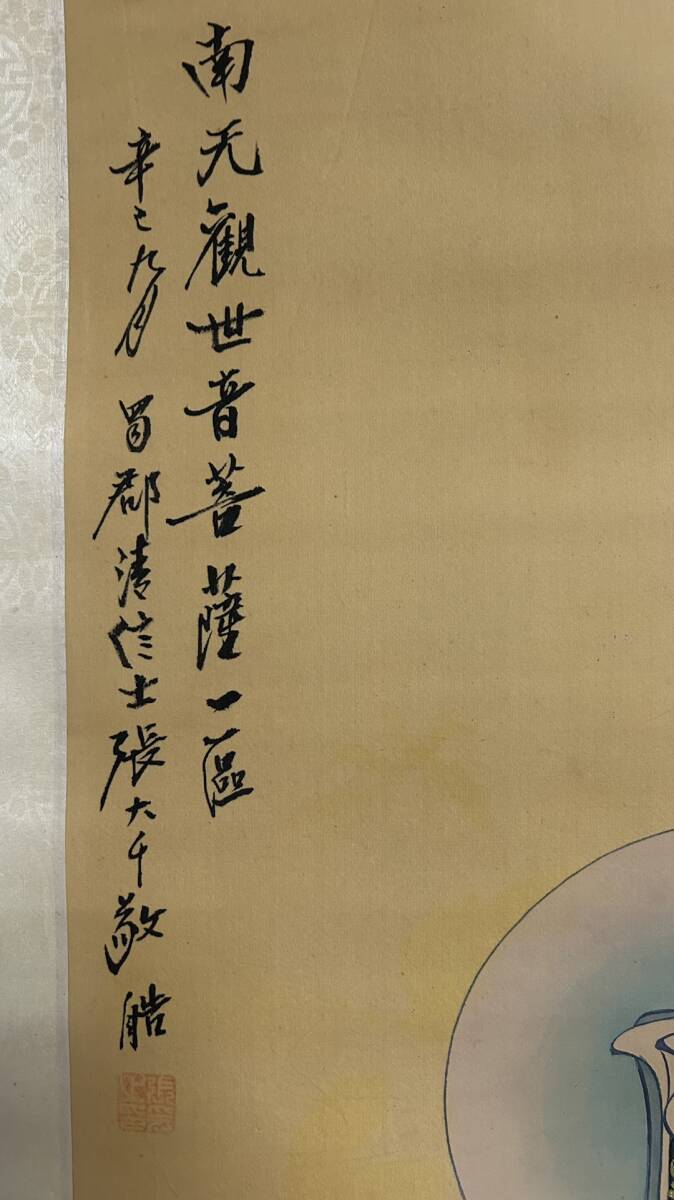 南无觀世音菩薩一區
辛巳九月 蜀郡清信士張大千敬